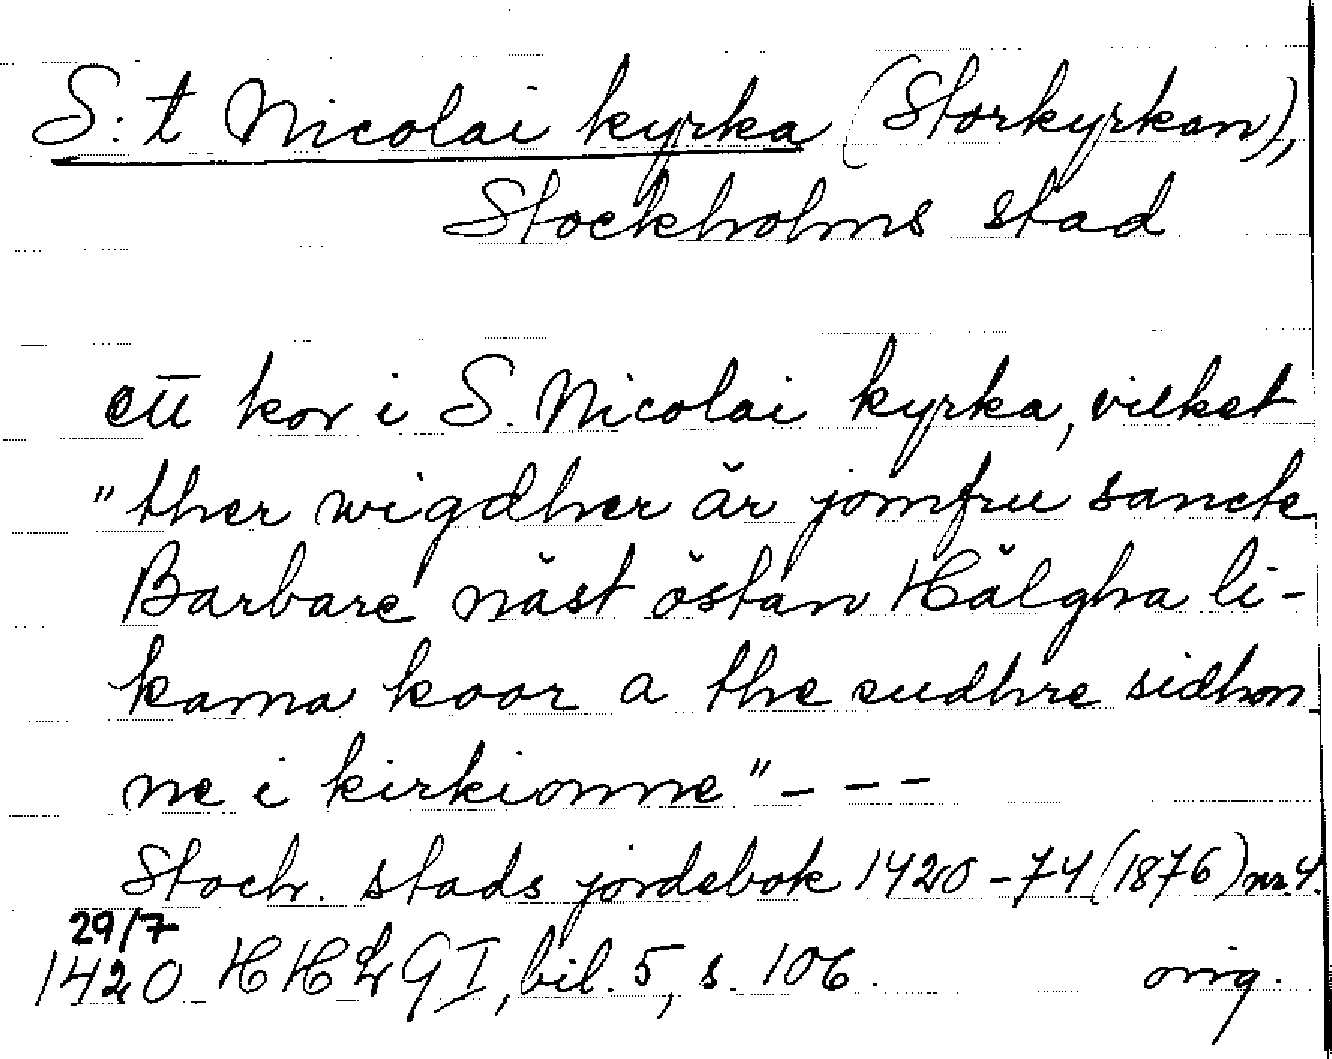 S:t Nicolai kyrka (Storkyrkan),
Stockholms stad
ett kor i S. Nicolai kyrka, vilket
"ther wigdher är jomfru sancte
Barbare näst östan Hälgha li-
kama koor a the sudhre sidhon
ne i kirkionne" - - -
Stoch. stads jordebok 1420-74 (1876) nr 4.
29/7
1420 HH LG I, bil. 5, s. 106. orig.